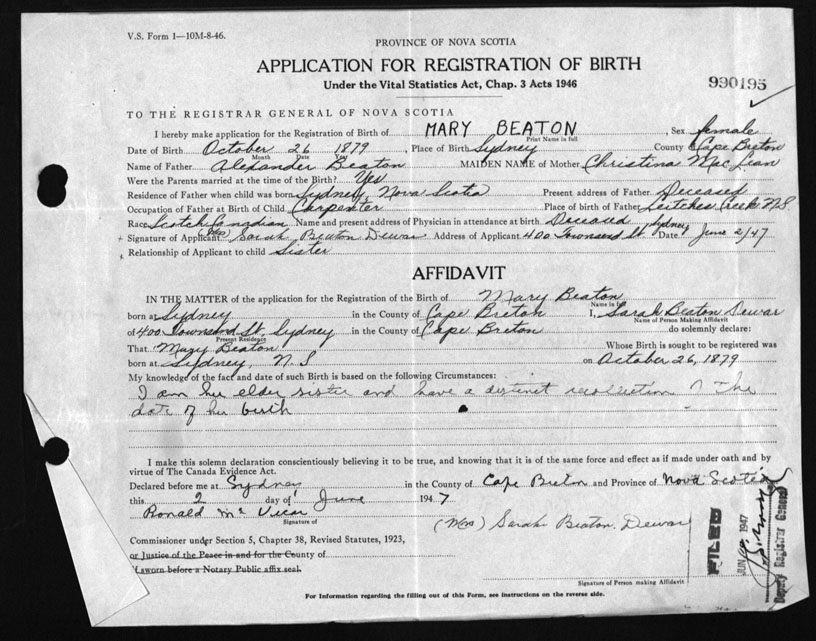 V.S. Form 1—10M-8-46.
PROVINCE OF NOVA SCOTIA
APPLICATION FOR REGISTRATION OF BIRTH
Under the Vital Statistics Act, Chap. 3 Acts 1946
990195
TO THE REGISTRAR GENERAL OF NOVA SCOTIA
I hereby make application for the Registration of Birth of MARY BEATON, Sex female
Print Name in full
Date of Birth October 26 1879, Place of Birth Sydney County Cape Breton
Month Date Year
Name of Father Alexander Beaton MAIDEN NAME of Mother Christina Mac Lean
Were the Parents married at the time of the Birth? Yes
Residence of Father when child was born Sydney, Nova Scotia Present address of Father Deceased
Occupation of Father at Birth of Child Carpenter Place of birth of Father Leitches Creek N.S
Race Scotch Canadian Name and present address of Physician in attendance at birth Deceased
Signature of Applicant (Mrs) Sarah Beaton Dewar Address of Applicant 400 Townsend St. Sydney Date June 2/47
Relationship of Applicant to child Sister
AFFIDAVIT
IN THE MATTER of the application for the Registration of the Birth of Mary Beaton
Name in full
born at Sydney in the County of Cape Breton I, Sarah Beaton Dewar
Name of Person Making Affidavit
of 400 Townsend St, Sydney in the County of Cape Breton do solemnly declare:
Present Residence
That Mary Beaton Whose Birth is sought to be registered was
born at Sydney, N.S on October 26, 1879
My knowledge of the fact and date of such Birth is based on the following Circumstances:
I am her elder sister and have a distinct recollection of the
date of her birth
I make this solemn declaration conscientiously believing it to be true, and knowing that it is of the same force and effect as if made under oath and by
virtue of The Canada Evidence Act.
Declared before me at Sydney in the County of Cape Breton and Province of Nova Scotia
this 2 day of June 1947
Ronald Mc Vicar
Signature of
(Mrs) Sarah Beaton Dewar
Commissioner under Section 5, Chapter 38, Revised Statutes, 1923,
or Justice of the Peace in and for the County of
if sworn before a Notary Public affix seal.
Signature of Person making Affidavit
FILED
JUN 1947
Deputy Registrar General
For Information regarding the filling out of this Form, see instructions on the reverse side.